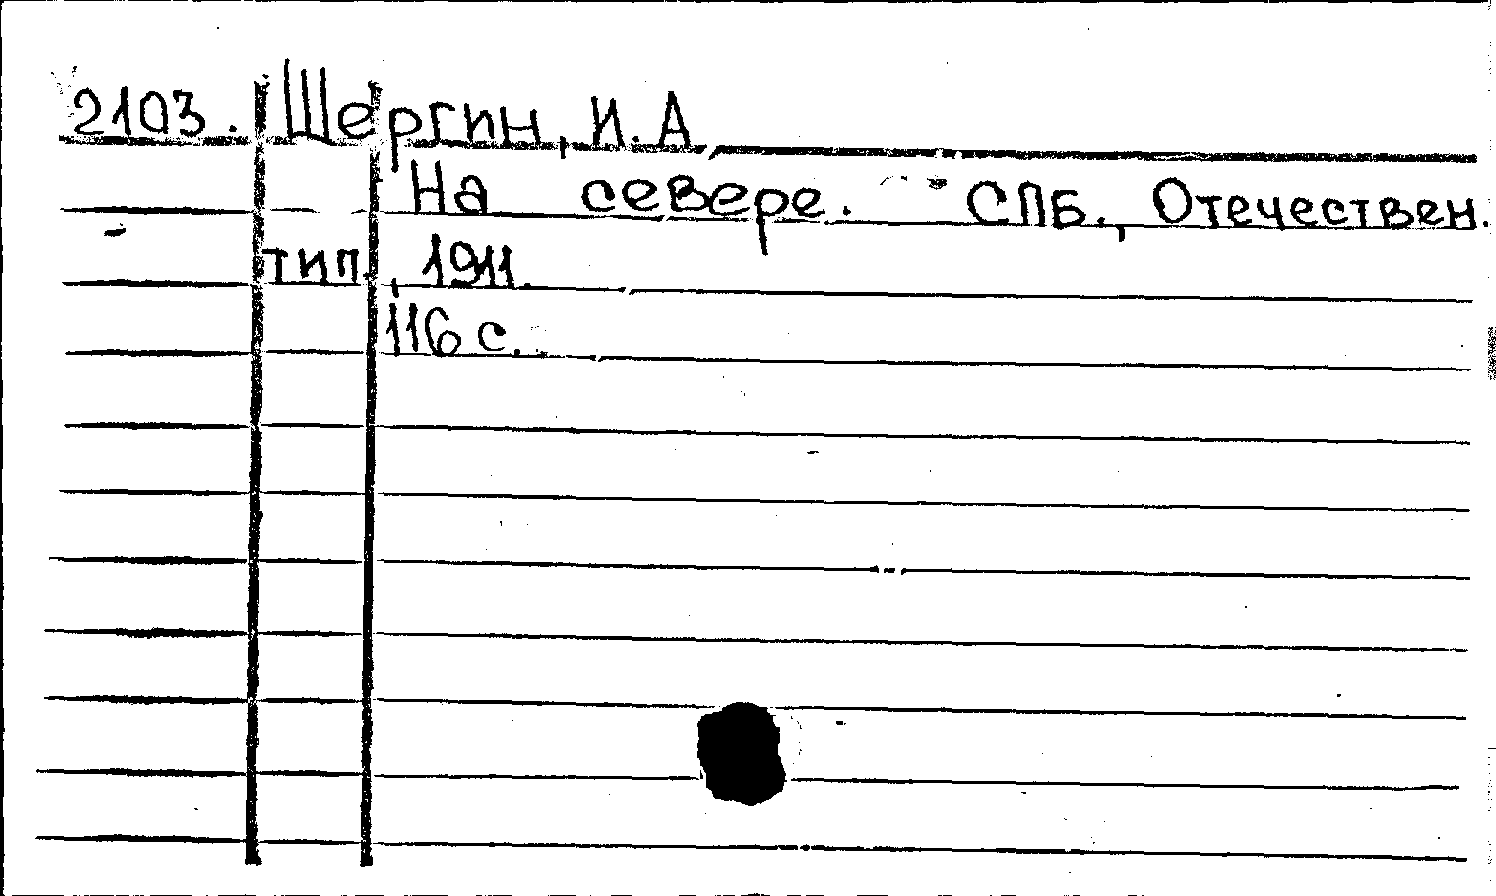 2103. Шергин, И. А.
На севере. СПБ., Отечествен.
тип., 1911.
116 с.